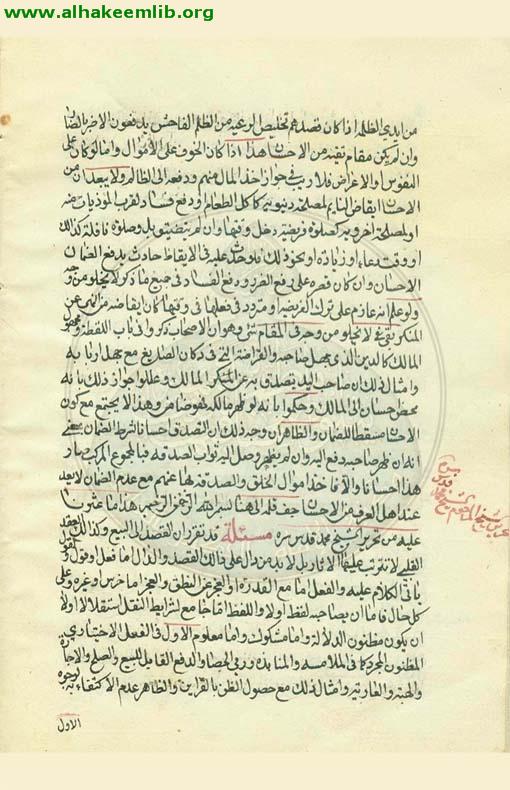 www.alhakeemlib.org
من ايدي الظلمة اذا كان قصدهم تخليص الرعية من الظلم الفاحش يدفعون الاخر بالضمان
وان لم يكن مقام تقية من الاحسان هذا اذا كان الخوف على الأموال وامالو كان على
النفوس او الاعراض فلا ريب في جواز اخذ المال منهم ودفعه الى الظالم ولا يبعد ان من
الاحسان ايقاض النايم لمصلحة دنيوية كاكل الطعام او دفع فساد لقرب الموذيات منه
او لمصلحة اخروية كصلوة فريضة دخل وقتها وان لم يتضيق بل وصلوة نافلة كذلك
او وقت دعاء او زيارة او نحو ذلك فلو حدث عليه في الايقاظ حادث يدفع الضمان
الاحسان وان كان قصره على رفع الضرر ودفع الفساد في جميع ما ذكر لا يخلو من وجه
ولو علم انه عازم على ترك الفريضة او متردد في فعلها في وقتها كان ايقاضه من النهي عن
المنكر بقي شيء لا يخلو من وجه في المقام وهو ان الاصحاب ذكروا في باب اللقطة ومجهول
المالك كالدين الذي جهل صاحبه والقراضة التي في دكان الصايغ مع جهل اربابه
وامثال ذلك ان صاحب اليد يتصدق به عن المالك وعللوا جواز ذلك بانه
محض احسان الى المالك وحكموا بانه لو ظهر مالكه نفوضا مر وهذا لا يجتمع مع كون
الاحسان مسقطا للضمان والظاهر ان وجه ذلك ان التصدق احسان بشرط الضمان بمعنى
انه ان ظهر صاحبه دفع اليه وان لم يظهر وصل اليه ثواب الصدقة فالمجموع المركب بار
هذا احسانا والا فاخذ اموال الخلق والصدقة بها عنهم مع عدم الضمان لا يعد
عند اهل العرف من الاحسان
عليه من تحرير الشيخ محمد قدس سره مسئلة قد تقرر ان القصد الى البيع وكذا كل العقد
القلبي لا تترتب عليها الاثار بل لا بد من دال على ذلك القصد والدال اما فعل او قول
ياتي الكلام عليه والفعل اما مع القدرة او العجز عن النطق والعجز اما خرس او غيره وعلى
كل حال فاما ان يصاحبه لفظ اولا واللفظ اما جامع لشرايط النقل استقلالا اولا
ان يكون مظنون الدلالة واما مشكوك واما معلوم الاول في الفعل الاختياري
المظنون المجرد كما في الملامسة والمنابذة ورمي الحصاة والدفع القابل للبيع والصلح والاجارة
والهبة والعارية وامثال ذلك مع حصول الظن بالقراين والظاهر عدم الاكتفاء به لوجوه
الاول